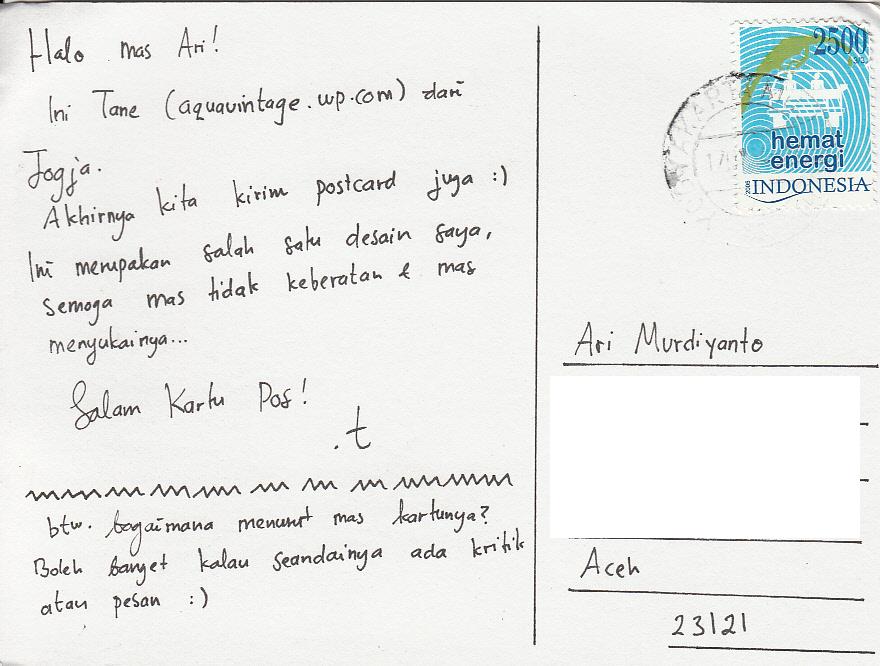 Halo mas Ari!
Ini Tane (aquavintage.wp.com) dari
Jogja.
Akhirnya kita kirim postcard juga :)
Ini merupakan salah satu desain saya,
semoga mas tidak keberatan & mas
menyukainya...
Salam Kartu Pos!
.t
btw. bagaimana menurut mas kartunya?
Boleh banget kalau seandainya ada kritik
atau pesan :)
2500
hemat
energi
2008 INDONESIA
Ari Murdiyanto
Aceh
23121